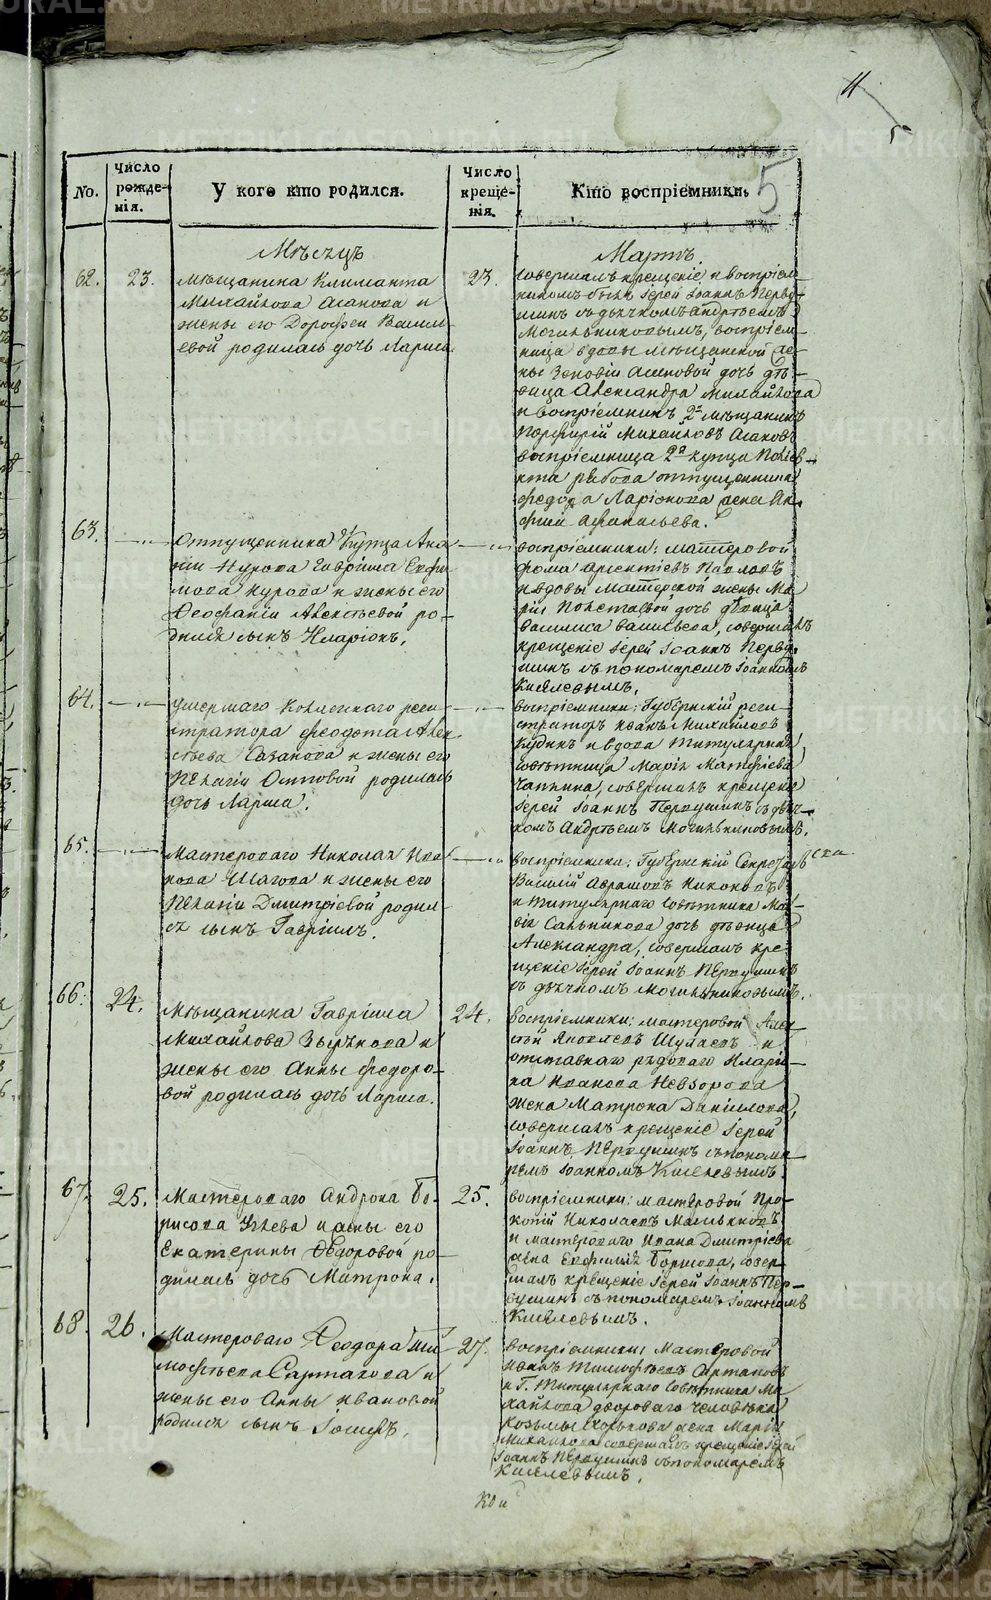 11
5
5
No.
Число рожде-нія.
У кого кто родился.
Число креще-нія.
Кто воспріемники.
Мѣсяцъ
Мартъ.
62.
23.
мѣщанина Климанта
Михайлова Асанова и
жены его Дорофеи Васил
евой родилась дочь Лариса
23.
совершалъ крещеніе и воспріем-
никомъ былъ Іерей Іоаннъ Перву-
шинъ съ дьячкомъ Андрѣемъ
Могильниковымъ, воспріем-
ница вдовы мѣщанской же-
ны Зеновіи Асановой дочь дѣ-
вица Александра Михайлова
и воспріемникъ 2й мѣщанинъ
Порфирій Михайловъ Асановъ
воспріемница 2я купца Поліев-
кта отпущенника
Федора Ларіонова жена
Афанасьева.
63.
Отпущенника Купца Ана
ніи Нурова Гавріила Ефи
мова Нурова и жены его
Феофаніи Алексѣевой ро-
дился сынъ Иларіонъ,
воспріемники: мастеровой
Фома Арсентіевъ Павловъ
и вдовы мастерской жены Ма
ріи дочь дѣвица
Василиса Васильева, совершалъ
крещеніе Іерей Іоаннъ Перву
шинъ съ пономаремъ Іоанномъ
Киселевымъ.
64.
Умершаго Колежскаго реги-
стратора Феодота Алек
сѣева Сазанова и жены его
Пелагіи Осиповой родилась
дочь Лариса.
воспріемники: Губернскій реги-
страторъ Иванъ Михайловъ
Кудинъ и вдова Титулярная
совѣтница Марія Матфіева
Чапкина, совершалъ крещеніе
Іерей Іоаннъ Первушинъ съ дьяч-
комъ Андрѣемъ Могильниковымъ.
65.
Мастероваго Николая Ива
нова Шагова и жены его
Пелагіи Дмитріевой родил-
ся сынъ Гавріилъ.
воспріемники: Губернскій Секретарь
Василій Аврамовъ Никоновъ
и Титулярнаго совѣтника
Сальникова дочь дѣвица
Александра, совершалъ кре-
щеніе Іерей Іоаннъ Первушинъ
съ дьячкомъ Могильниковымъ.
66.
24.
Мѣщанина Гавріила
Михайлова Зырянова и
жены его Анны Федоро-
вой родилась дочь Лариса.
24.
воспріемники: мастеровой Алек
сѣй Яковлевъ и
отставнаго рядоваго Илларі-
на Иванова Невзорова
жена Матрона Данилова,
совершалъ крещеніе Іерей
Іоаннъ Первушинъ съ понома
ремъ Іоанномъ Киселевымъ.
67.
25.
Мастероваго Андрона Бо-
рисова и жены его
Екатерины Федоровой ро-
дилась дочь Матрона.
25.
воспріемники: мастеровой Про-
копій Николаевъ Масленковъ
и мастероваго Ивана Дмитріева
жена Борисова, совер-
шалъ крещеніе Іерей Іоаннъ Пер-
вушинъ съ пономаремъ Іоанномъ
Киселевымъ.
68.
26.
Мастероваго Феодора Ти
мофѣева Сартакова и
жены его Анны Ивановой
родился сынъ Іосифъ.
27.
воспріемники: Мастеровой
Иванъ Тимофѣевъ Сартаковъ
и Г. Титулярнаго совѣтника Ми
хайлова двороваго человѣка
Козьмы жена Марія
Михайлова совершалъ крещеніе Іерей
Іоаннъ Первушинъ съ пономаремъ
Киселевымъ.
METRIKI.GASO-URAL.RU